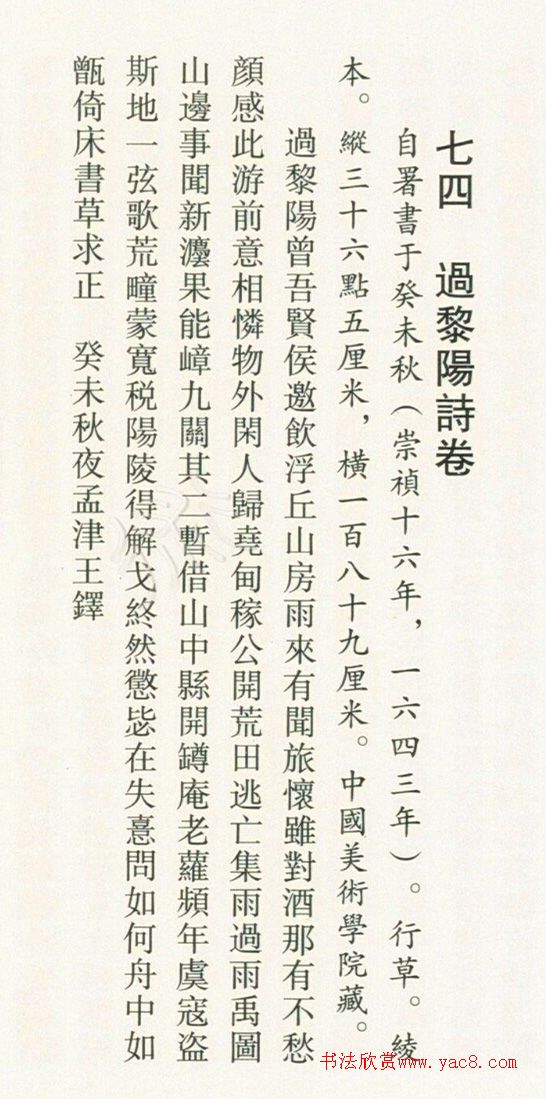 七四　過黎陽詩卷
自署書于癸未秋（崇禎十六年，一六四三年）。行草。綾
本。縱三十六點五厘米，橫一百八十九厘米。中國美術學院藏。
過黎陽曾吾賢侯邀飲浮丘山房雨來有聞旅懷雖對酒那有不愁
顏感此游前意相憐物外閑人歸堯甸稼公開荒田逃亡集雨過雨禹圖
山邊事聞新灋果能嶂九關其二暫借山中縣開罇庵老蘿頻年虞寇盜
斯地一弦歌荒疃蒙寬税陽陵得解戈終然懲毖在失憙問如何舟中如
甑倚床書草求正　癸未秋夜孟津王鐸
书法欣赏www.yac8.com